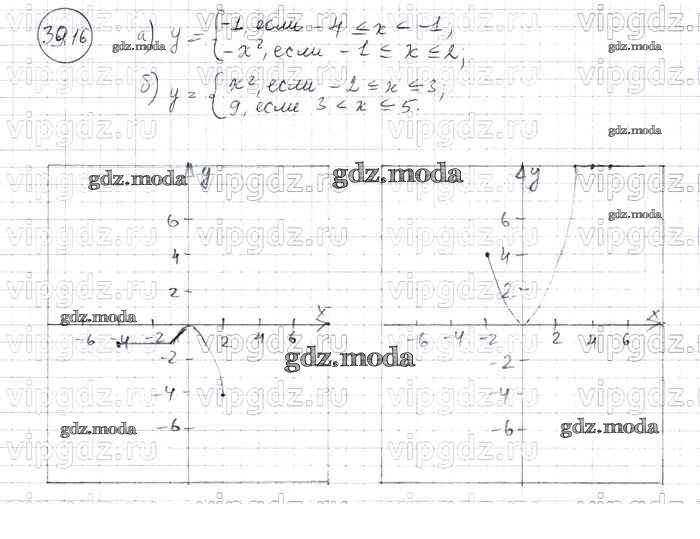 39.16 а) y = { -1, если -4 ≤ x < -1,
-x², если -1 ≤ x ≤ 2;
б) y = { x², если -2 ≤ x ≤ 3;
9, если 3 < x ≤ 5.
gdz.moda gdz.moda
vipgdz.ru vipgdz.ru vipgdz.ru vipgdz.ru
gdz.moda
gdz.moda y gdz.moda y
gdz.moda
6 6
4 4
2 2
gdz.moda x x
-6 -4 -2 2 4 6 -6 -4 -2 2 4 6
-2 -2
gdz.moda
-4 -4
gdz.moda -6 -6 gdz.moda
vipgdz.ru vipgdz.ru vipgdz.ru vipgdz.ru